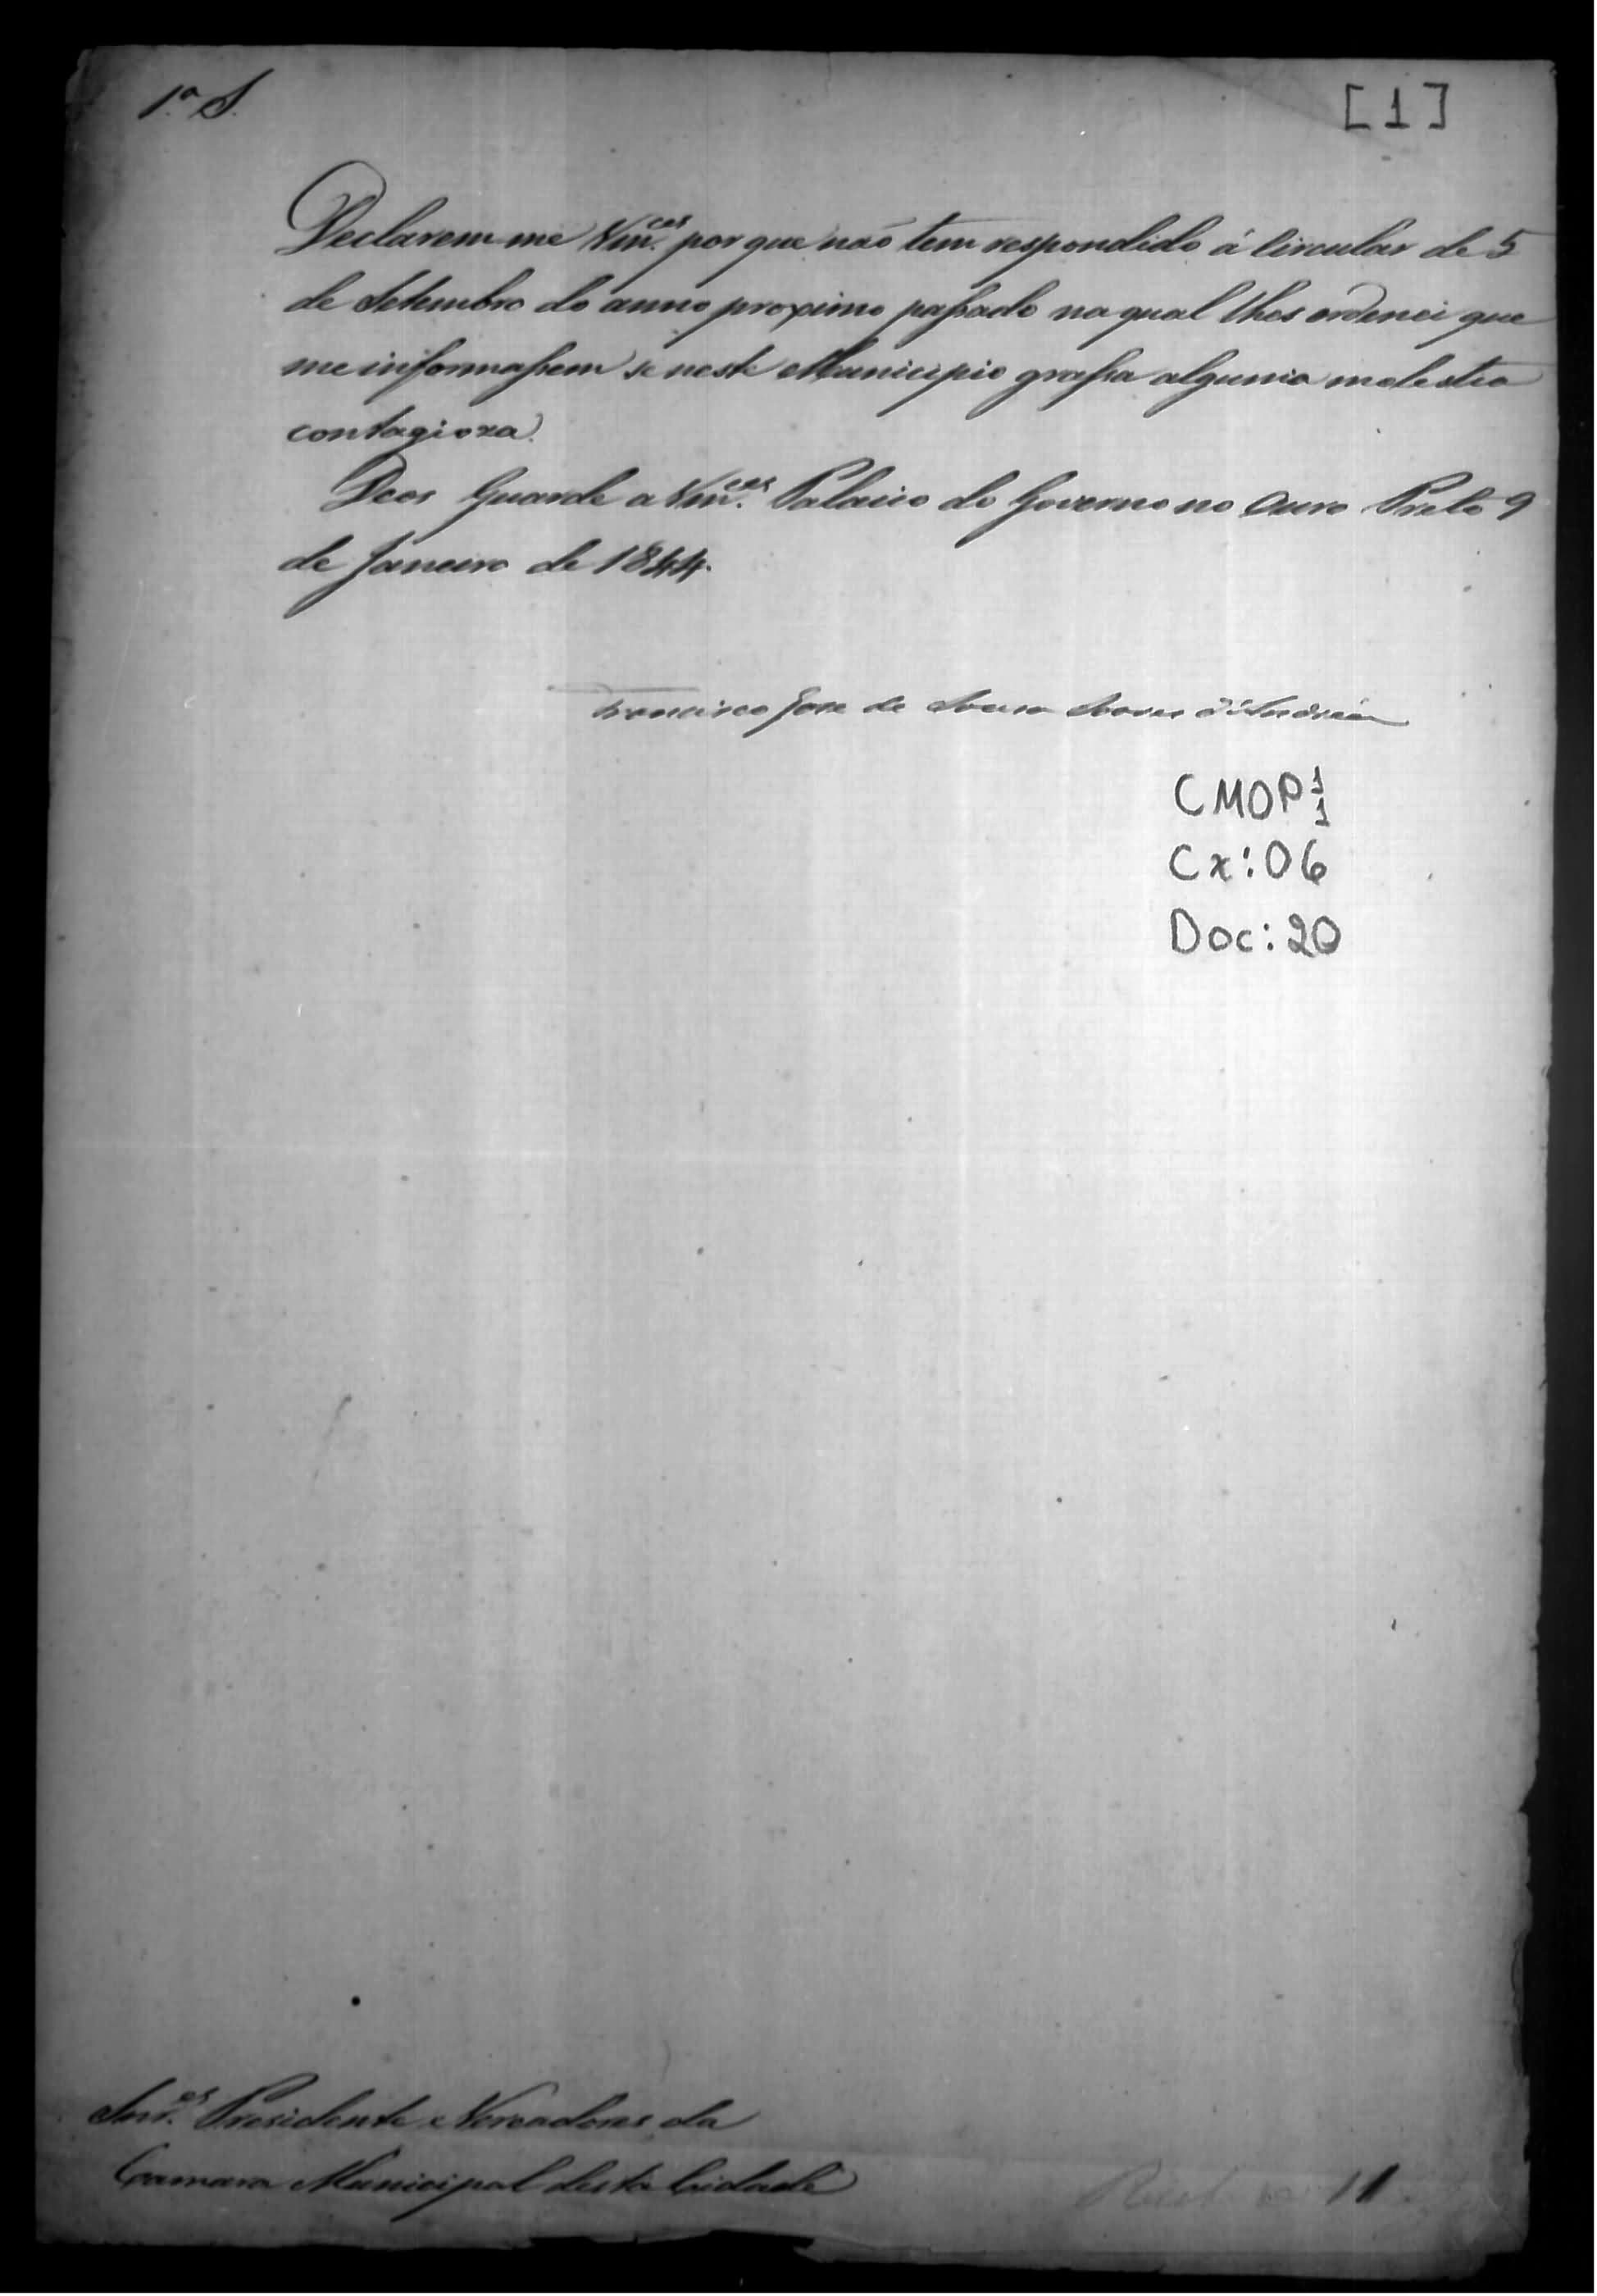 1.ª S.
[1]
Declarem-me Vm.ces por que não tem respondido á Circular de 5
de Setembro do anno proximo passado na qual lhes ordenei que
me informassem se neste Municipio grassa alguma molestia
contagioza.
Deos Guarde a Vm.ces Palacio do Governo no Ouro Preto 9
de Janeiro de 1844.
Francisco Jose de Souza Soares d'Andrea
CMOP 1/1
Cx: 06
Doc: 20
Snr.es Presidente e Vereadores da
Camara Municipal desta Cidade
11